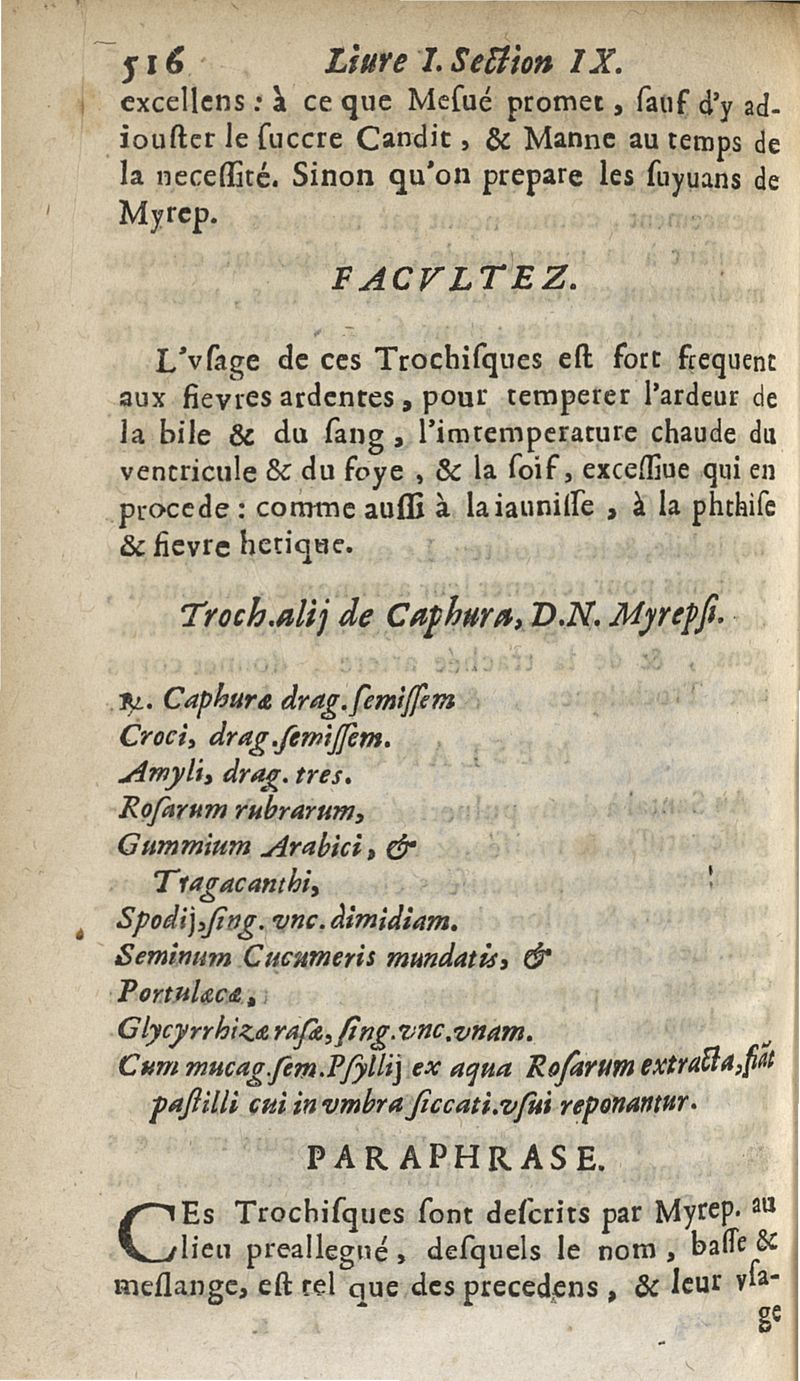 516 Liure I. Section IX.
excellens : à ce que Mesué promet, sauf d'y ad-
iouster le succre Candit, & Manne au temps de
la necessité. Sinon qu'on prepare les suyuans de
Myrep.
FACVLTEZ.
L'vsage de ces Trochisques est fort frequent
aux fievres ardentes, pour temperer l'ardeur de
la bile & du sang, l'imtemperature chaude du
ventricule & du foye, & la soif, excessiue qui en
procede : comme aussi à la iaunisse, à la phthise
& fievre hetique.
Troch.alij de Caphura, D.N. Myrepsi.
℞. Caphuræ drag. semissem
Croci, drag. semissem.
Amyli, drag. tres.
Rosarum rubrarum,
Gummium Arabici, &
Tragacanthi,
Spodij, sing. vnc. dimidiam.
Seminum Cucumeris mundatis, &
Portulacæ,
Glycyrrhizæ rasæ, sing. vnc. vnam.
Cum mucag. sem. Psyllij ex aqua Rosarum extracta, fiãt
pastilli cui in vmbra siccati. vsui reponantur.
PARAPHRASE.
CEs Trochisques sont descrits par Myrep. au
lieu preallegué, desquels le nom, basse &
meslange, est tel que des precedens, & leur vsa-
ge